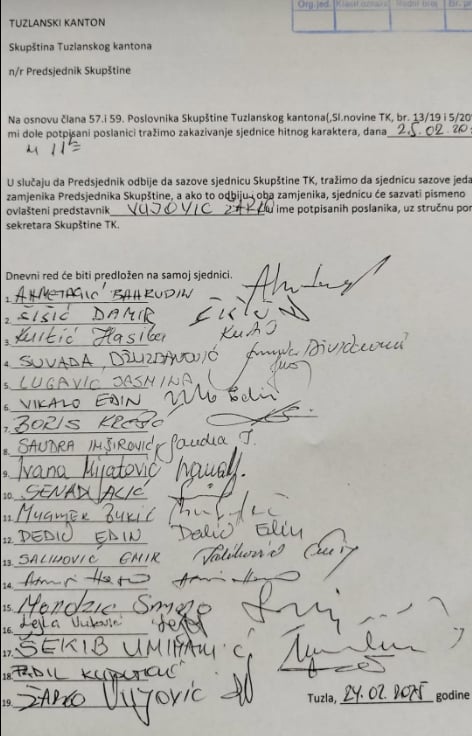 Org.jed. Klasif.oznaka Redni broj Br. pr
TUZLANSKI KANTON
Skupština Tuzlanskog kantona
n/r Predsjednik Skupštine
Na osnovu člana 57.i 59. Poslovnika Skupštine Tuzlanskog kantona(,Sl.novine TK, br. 13/19 i 5/20
mi dole potpisani poslanici tražimo zakazivanje sjednice hitnog karaktera, dana 25.02.20
u 11
U slučaju da Predsjednik odbije da sazove sjednicu Skupštine TK, tražimo da sjednicu sazove jeda
zamjenika Predsjednika Skupštine, a ako to odbiju oba zamjenika, sjednicu će sazvati pismeno
ovlašteni predstavnik VUJOVIĆ ŽARKO u ime potpisanih poslanika, uz stručnu po
sekretara Skupštine TK.
Dnevni red će biti predložen na samoj sjednici.
1. AHMETAGIĆ BAHRUDIN
2. ŠIŠIĆ DAMIR
3. Hasiba
4. SUVADA
5. LUGAVIĆ JASMINA
6. VIKALO EDIN Edin
7. BORIS KREŠIĆ
8. SANDRA IMŠIROVIĆ Sandra I.
9. Ivana Mijatović
10. SENAD ALIĆ
11.
12. DEDIĆ EDIN Dedić Edin
13. SALIHOVIĆ EMIR Salihović Emir
14.
15.
16. Lejla Vuković
17. ŠEKIB UMIHANIĆ
18.
19. ŽARKO VUJOVIĆ
Tuzla, 24.02.2025 godine